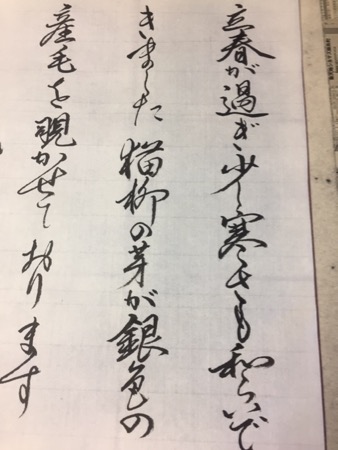 立春が過ぎ少し寒さも和らいで
きました猫柳の芽が銀色の
産毛を覗かせております